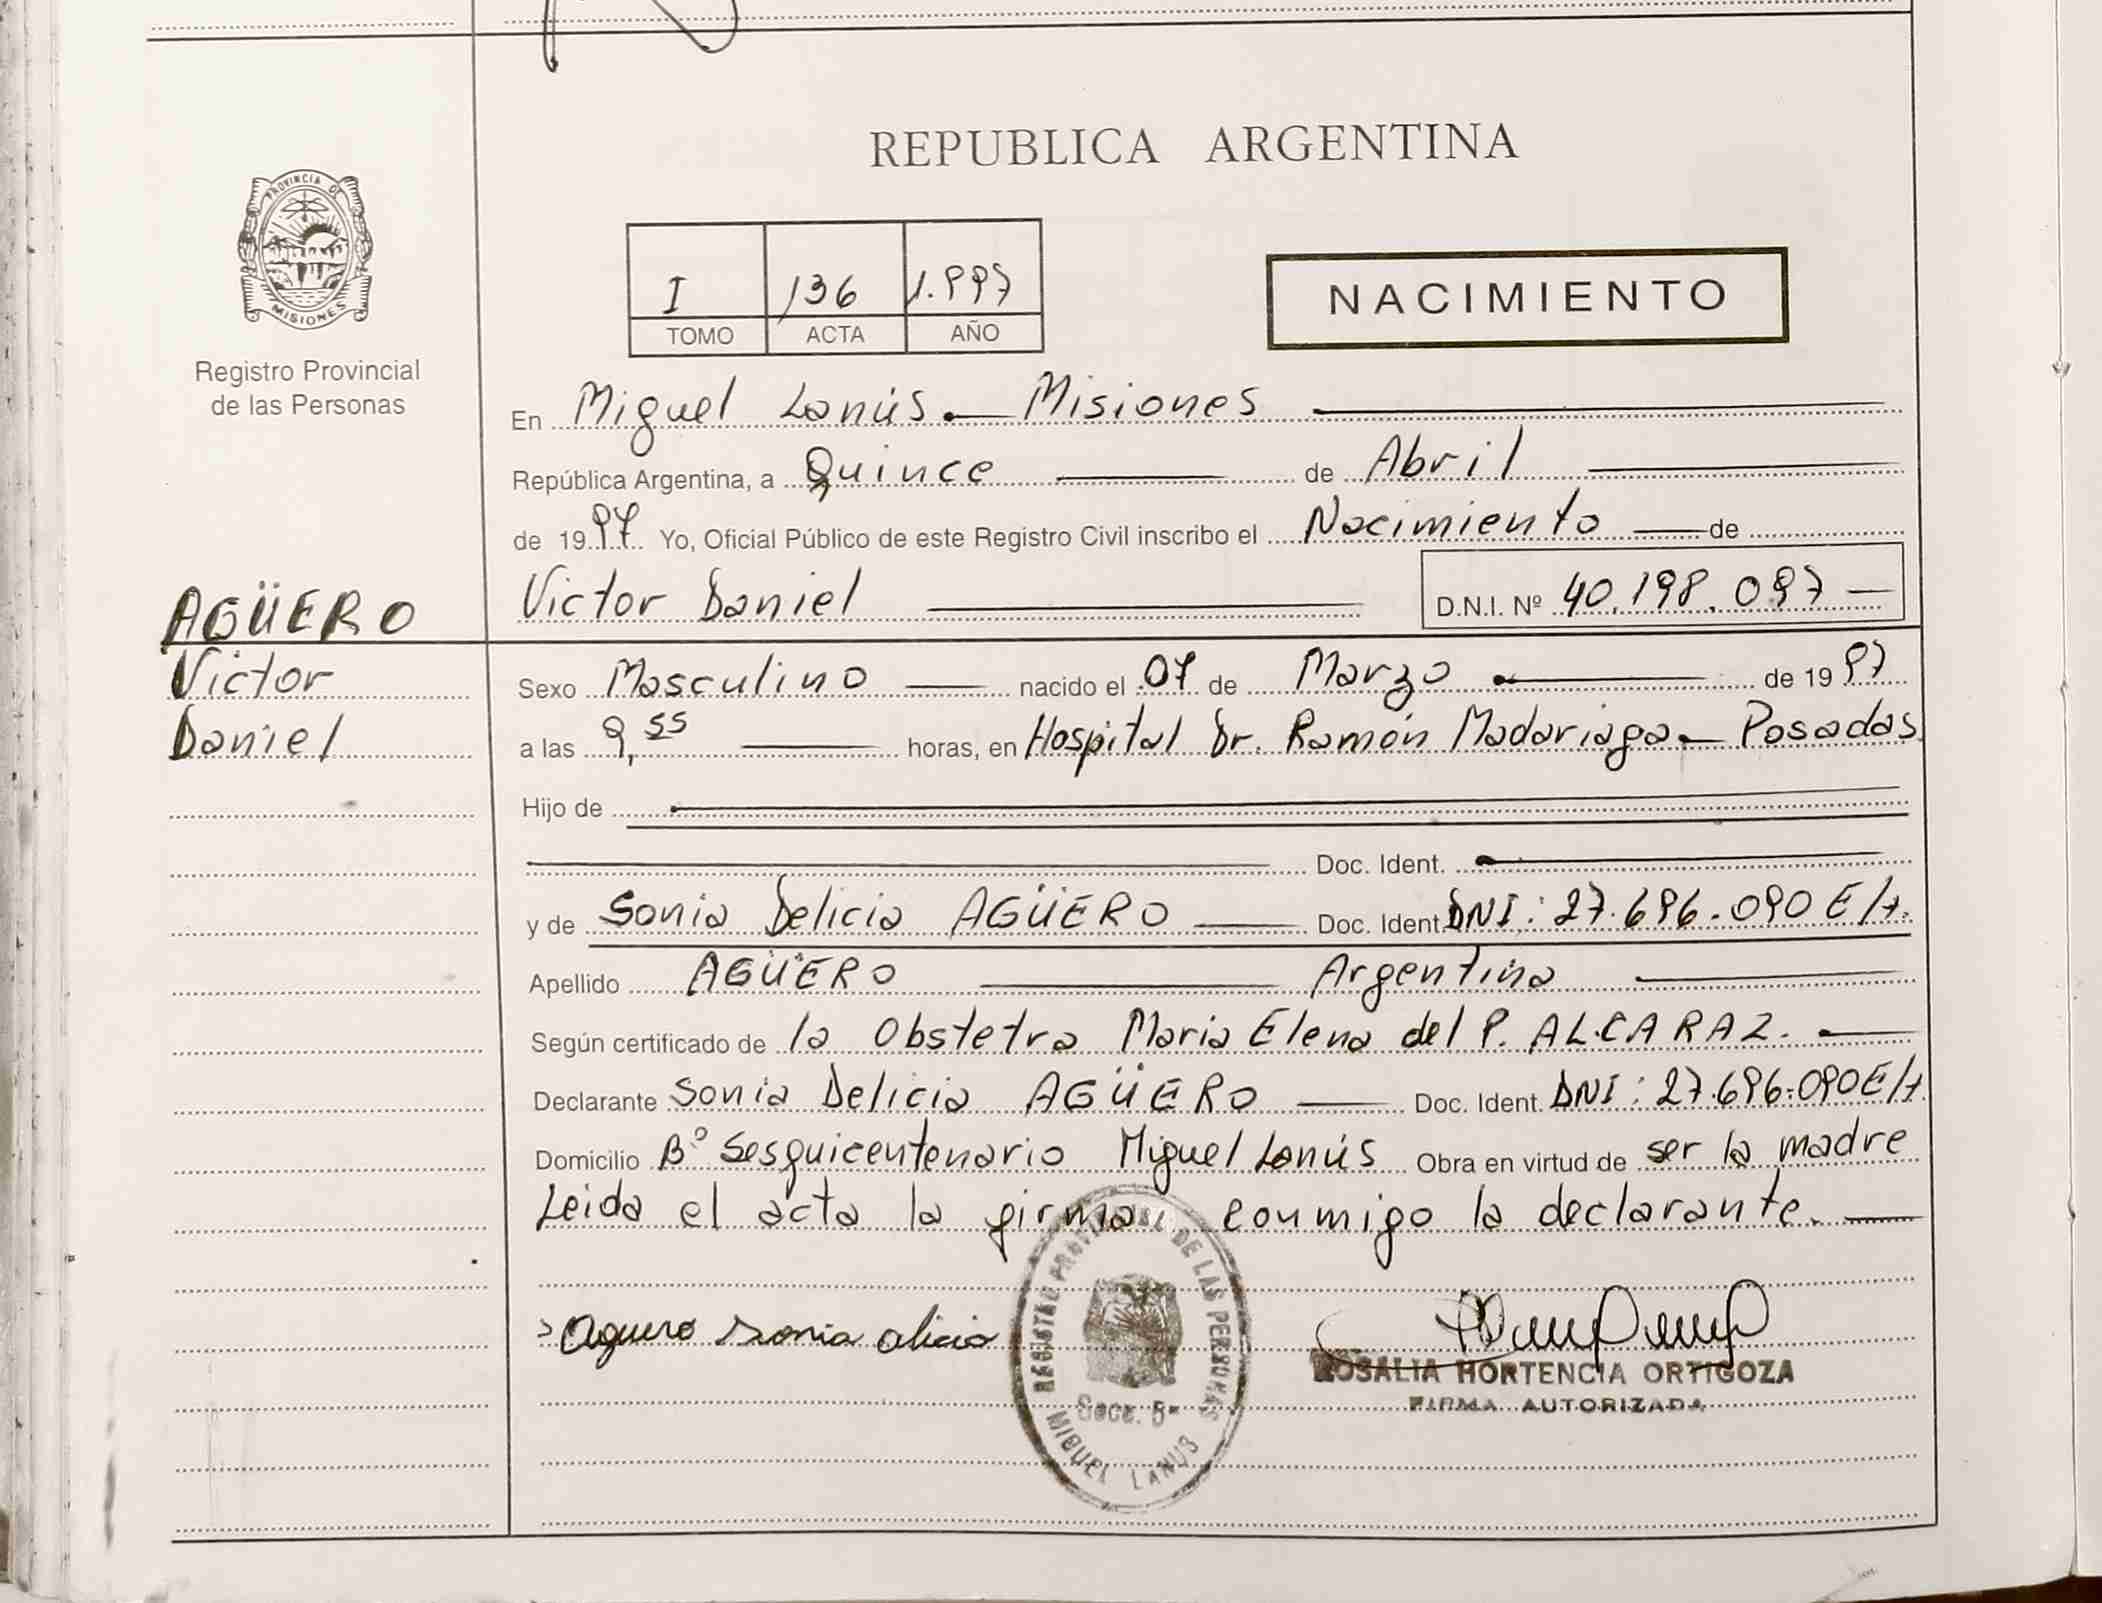 PROVINCIA DE
MISIONES
Registro Provincial
de las Personas
REPUBLICA ARGENTINA
I 136 1.997
TOMO ACTA AÑO
NACIMIENTO
En Miguel Lanús. Misiones
República Argentina, a Quince de Abril
de 1997 Yo, Oficial Público de este Registro Civil inscribo el Nacimiento de
Victor Daniel D.N.I. Nº 40.198.097
AGÜERO
Victor
Daniel
Sexo Masculino nacido el 07 de Marzo de 1997
a las 9,55 horas, en Hospital Dr. Ramón Madariaga - Posadas
Hijo de
Doc. Ident.
y de Sonia Delicia AGÜERO Doc. Ident. DNI: 27.696.090 E/t.
Apellido AGÜERO Argentina
Según certificado de la Obstetra Maria Elena del P. ALCARAZ.
Declarante Sonia Delicia AGÜERO Doc. Ident. DNI: 27.696.090 E/t.
Domicilio Bº Sesquicentenario Miguel Lanús Obra en virtud de ser la madre
Leida el acta la firma conmigo la declarante.
Aguero sonia alicia
REGISTRO PROVINCIAL DE LAS PERSONAS
Secc. 5ª
MIGUEL LANUS
ROSALIA HORTENCIA ORTIGOZA
FIRMA AUTORIZADA